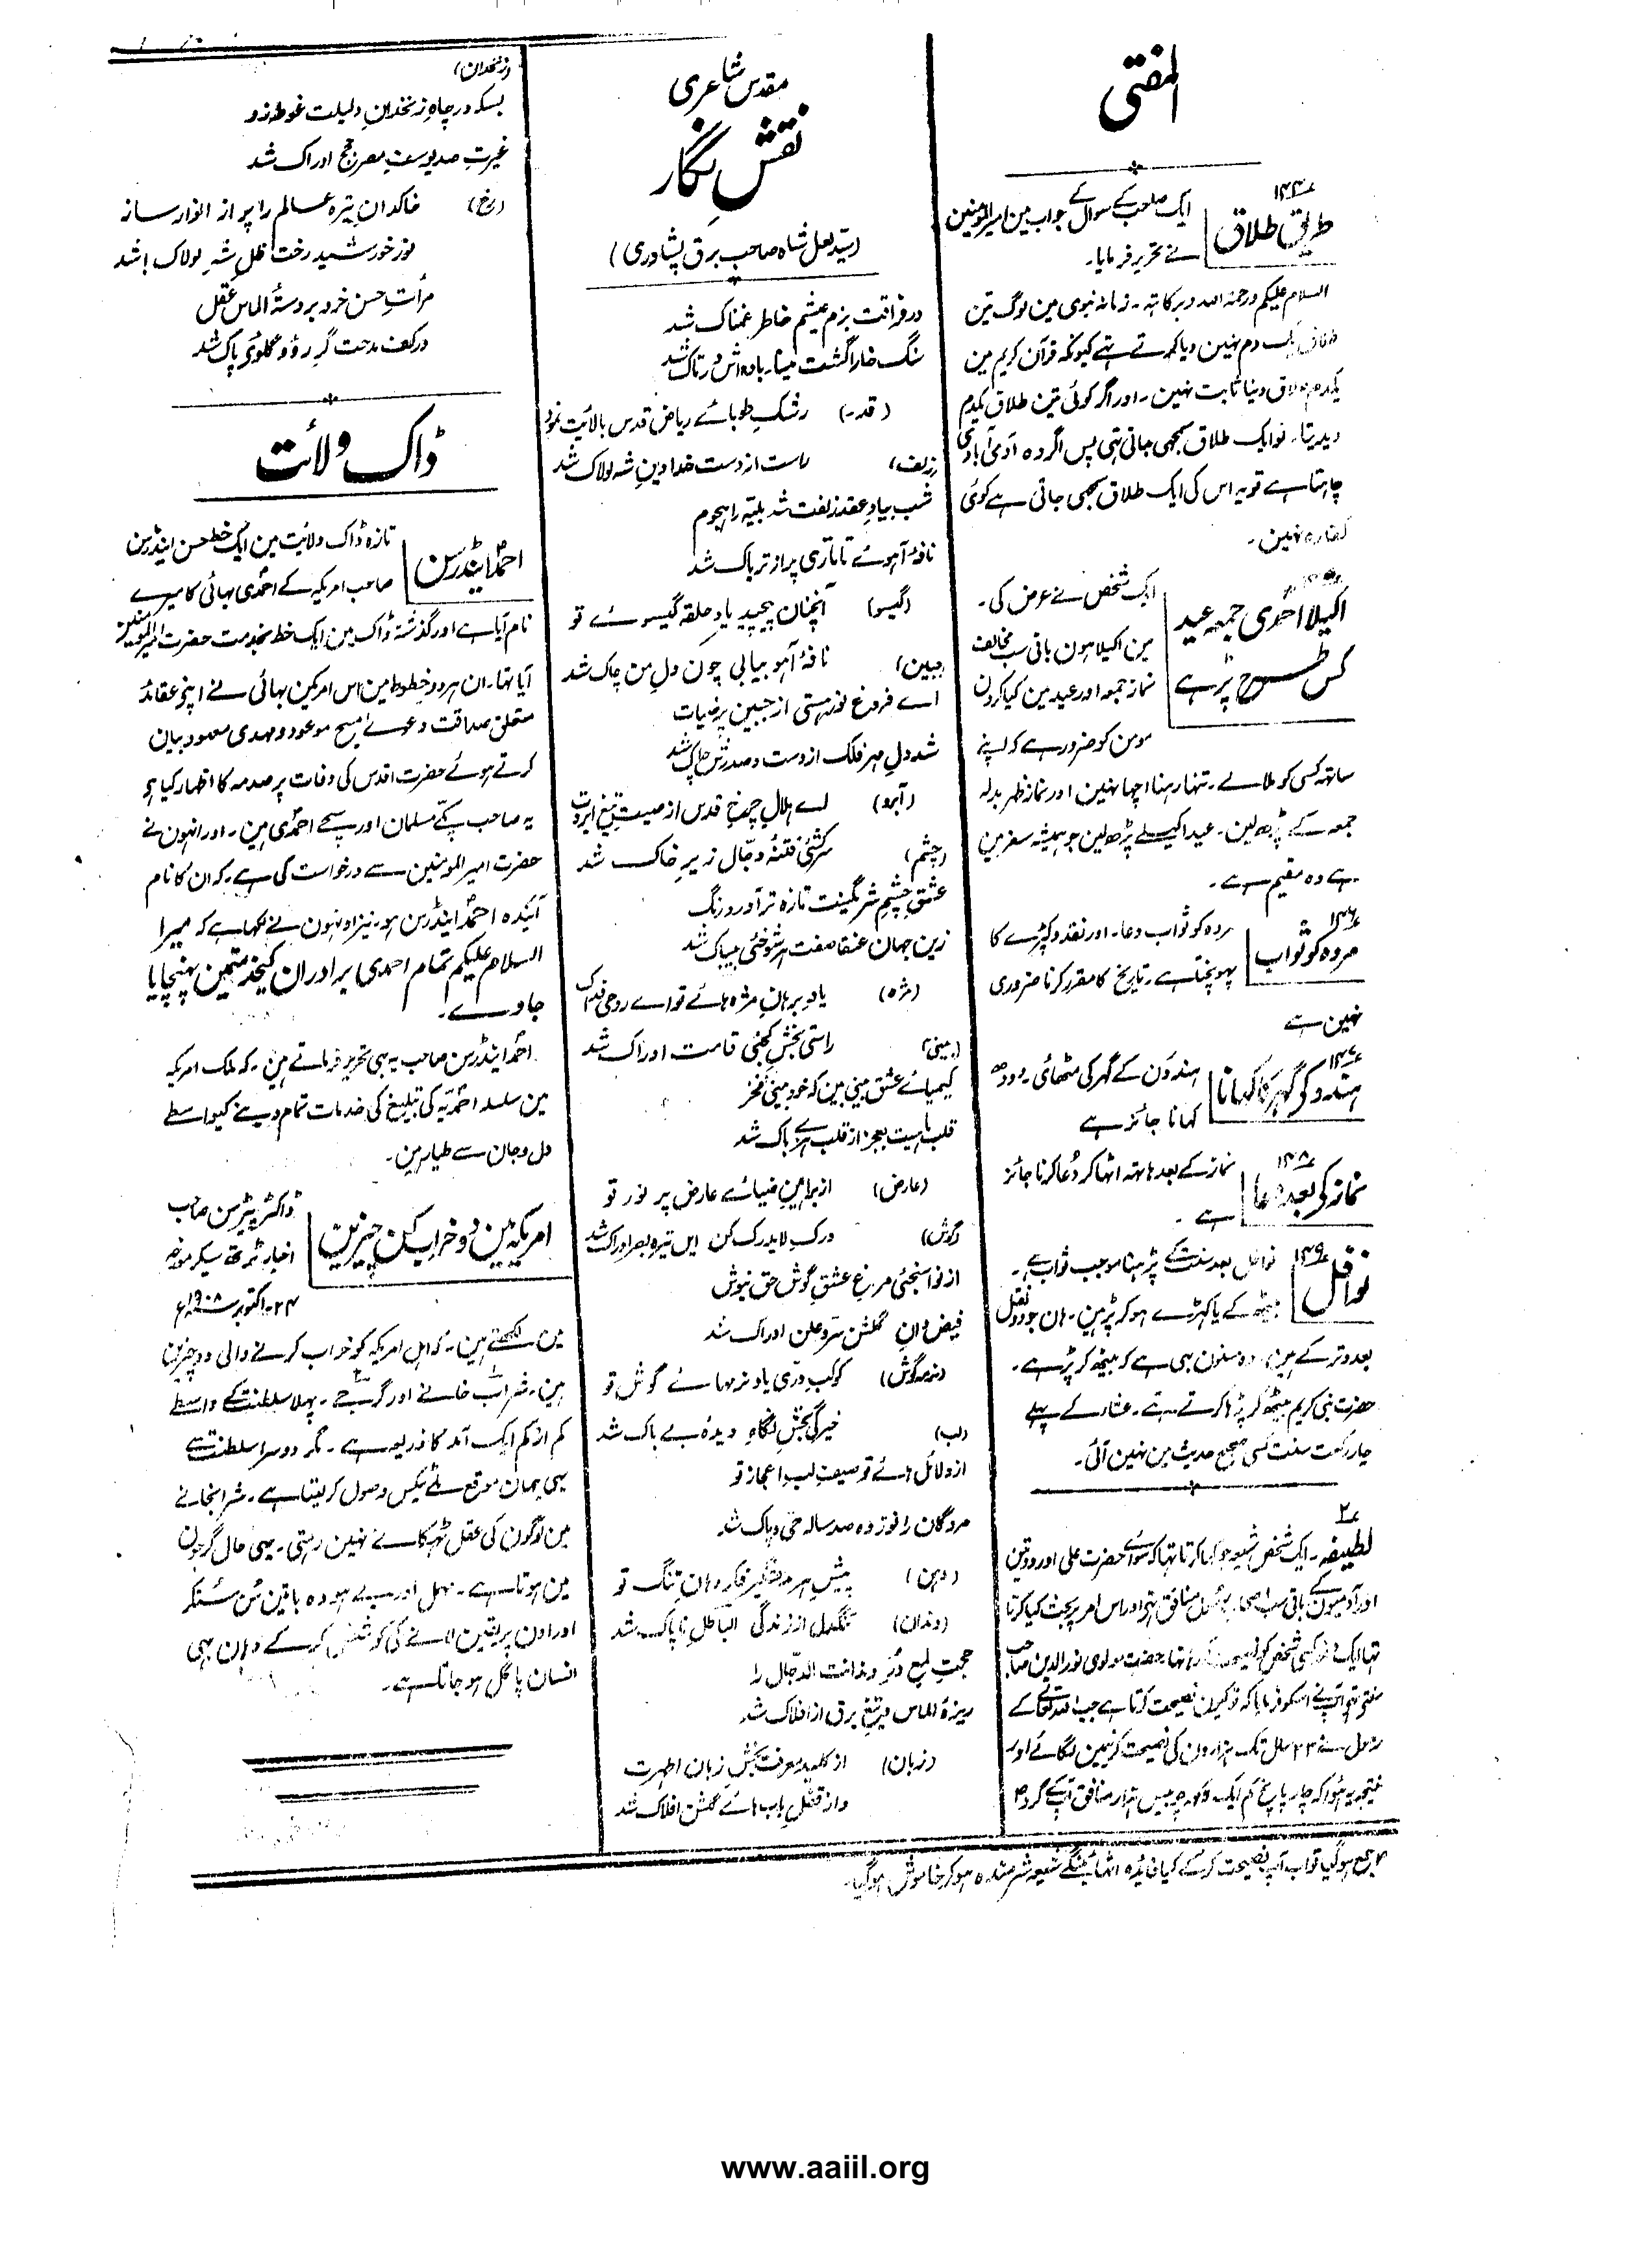 المفتی
۱۳۴ء
طریق طلاق
ایک صاحب کے سوال کے جواب مین امیرالمومنین
نے تحریر فرمایا۔
السلام علیکم ورحمۃ اللہ وبرکاتہ۔ زمانہ نبوی مین لوگ تین
طلاق یک دم نہین دیا کرتے تہے کیونکہ قرآن کریم مین
یکدم طلاق دینا ثابت نہین۔ اور اگر کوئی تین طلاق یکدم
دیدیتا۔ تو ایک طلاق سمجھی جاتی تہی پس اگر وہ آدمی آبادی
چاہتا ہے تو یہ اس کی ایک طلاق سمجھی جاتی ہے کوئی
کفارہ نہین۔
اکیلا احمدی جمعہ عید
کس طرح پڑہے
ایک شخص نے عرض کی۔
مین اکیلا ہون باقی سب مخالف
نماز جمعہ اور عید مین کیا کرون
مومن کو ضرور ہے کہ اپنے
ساتھ کسی کو ملاے۔ تنہا رہنا اچہا نہین اور نماز ظہر بدلہ
جمعہ کے پڑھ لین۔ عید اکیلے پڑھ لین جو ہمیشہ سفر مین
ہے وہ مقیم ہے۔
۱۳۶ء
مردہ کو ثواب
مردہ کو ثواب دعا۔ اور نقد و کپڑے کا
پہونچتا ہے۔ تاریخ کا مقرر کرنا ضروری
نہین ہے
۱۳۷ء
ہندو کے گہر کا کہانا
ہندؤن کے گہر کی مٹھائی۔ دودھ
کہانا جائز ہے
۱۳۸ء
نماز کے بعد دعا
نماز کے بعد ہاتھ اٹہا کر دُعا کرنا جائز
ہے۔
۱۳۹ء
نوافل
نوافل بعد سنت کے پڑہنا موجب ثواب ہے۔
بیٹھ کے یا کہڑے ہو کر پڑہین۔ ہان جو دو نفل
بعد وتر کے ہین۔ وہ مسنون یہی ہے کہ بیٹھ کر پڑہے۔
حضرت نبی کریم بیٹھ کر پڑہا کرتے تہے۔ عشاء کے پہلے
چار رکعت سنت کسی صحیح حدیث مین نہین آئی۔
لطیفہ۔ ایک شخص شیعہ جو کہا کرتا تہا کہ سوائے حضرت علی اور دو تین
اور آدمیون کے باقی سب اصحاب رسول منافق تہے اور اس امر پر بحث کیا کرتا
تہا ایک دفعہ کسی شخص کو نصیحت کر رہا تہا حضرت مولوی نورالدین صاحب
سنتے تہے آپنے اسکو فرمایا کہ تو کیون نصیحت کرتا ہے جب اللہ تعالےٰ کے
رسول نے ۲۳ سال تک ہزارون کی نصیحت کرنے مین لگائے اور
نتیجہ یہ ہوا کہ چار پانچ کم ایک لاکھ چوبیس ہزار منافق آپکے گرد
جمع ہو گیا تو اب آپ نصیحت کر کے کیا فائدہ اٹھائینگے شیعہ شرمندہ ہو کر خاموش ہو گیا۔
مقدس شاعری
نقش نگار
(سید لعل شاہ صاحب برق پشاوری)
در فراقت بزم عیشم خاطر غمناک شد
سنگ خارا گشت مینا۔ بادہ اش در تاک شد
(قد۔) رشکِ طوبائے ریاض قدس بالایت نمود
راست از دست خدا دینِ شہ لولاک شد
(زلف) شب بیادِ عقد زلفت شد بلیہ را ہجوم
نافۂ آہوئے تاتاری پر از تریاک شد
(گیسو) آنچنان پیچید یادِ حلقہ گیسوئے تو
نافۂ آہو بیابی چون دلِ من چاک شد
(جبین) اے فروغ نور ہستی از جبین پر ضیات
شد دلِ مہر فلک از دست و صدرش چاک شد
(ابرو) اے ہلالِ چرخ قدس از صیت تیغ ابروت
سرکشئی فتنۂ دجّال زیرِ خاک شد
(چشم) عشقِ چشمِ شرمگینت تازہ تر آورد رنگ
زین جہان عنقا صفت ہر شوخئی بیباک شد
(مژہ) یاد برہانِ مژہ ہائے تو اے روحی فداک
راستی بخشِ کجئی قامت ادراک شد
(بینی) کیمیائے عشق بینی بین کہ خود بینی فخر
قلب ماہیت بعجز از قلب ہر بے باک شد
(عارض) از براہینِ ضیائے عارض پر نور تو
درک لا یدرک کن این تیرہ بصر ادراک شد
(گوش) از نوا سنجئی مرغِ عشقِ گوش حق نیوش
فیض دانِ گلشن سرّ و علن ادراک شد
(نرمہ گوش) کوکب دری یاد نرمہائے گوش تو
خیرگی بخش نگاہِ دیدۂ بے باک شد
(لب) از دلائل ہائے توصیفِ لبِ اعجاز تو
مردگان را فوز دہ صد سالہ حی و پاک شد
(دہن) پیشِ ہر مدقق گیر فکر دہانِ تنگ تو
تنگدل از زندگی الباطلِ ناپاک شد
(دندان) حجتِ لمعِ دُرِ دندانت الدجّال را
ریزۂ الماس و تیغ برق از افلاک شد
(زبان) از کلید معرفت بخش زبان اطہرت
واز قفلِ باب ہائے گلشن افلاک شد
(زنخدان)
بسکہ در چاہِ زنخدانِ دلیلت غوطہ زد
غیرتِ صد یوسفِ مصر حج ادراک شد
(رخ) خاکدانِ تیرہ عالم را پر از انوار ساز
نور خورشید رخت ظلِ شہِ لولاک باشد
مرأتِ حسن خرد بر دستۂ الماس عقل
در کف مدحت گر رؤو گلوئ پاک شد
ڈاک ولائت
احمد اینڈرسن
تازہ ڈاک ولایت مین ایک خط حسن اینڈرسن
صاحب امریکہ کے احمدی بہائی کا میرے
نام آیا ہے اور گذشتہ ڈاک مین ایک خط بخدمت حضرت امیرالمومنین
آیا تہا۔ ان ہر دو خطوط مین اس امریکن بہائی نے اپنے عقائد
متعلق صداقت دعوےٰ مسیح موعود و مہدی معہود بیان
کرتے ہوئے حضرت اقدس کی وفات پر صدمہ کا اظہار کیا ہے
یہ صاحب پکے مسلمان اور سچے احمدی ہین۔ اور انہون نے
حضرت امیرالمومنین سے درخواست کی ہے۔ کہ ان کا نام
آئندہ احمد اینڈرسن ہو۔ نیز اونہون نے لکہا ہے کہ میرا
السلام علیکم تمام احمدی برادران کیخدمتمین پہنچایا
جاوے۔
احمد اینڈرسن صاحب یہ بہی تحریر فرماتے ہین۔ کہ ملک امریکہ
مین سلسلہ احمدیہ کی تبلیغ کی خدمات تمام دینے کیواسطے
دل و جان سے طیار ہین۔
امریکہ مین دو خراب کن چیزین
ڈاکٹر پیٹرسن صاحب
اخبار ٹرتھ سیکر مورخہ
۲۴۔ اکتوبر ۱۹۰۸ء
مین لکھتے ہین۔ کہ اہل امریکہ کو خراب کرنے والی دو چیزین
ہین۔ شراب خانے اور گرجے۔ پہلا سلطنت کے واسطے
کم از کم ایک آمد کا ذریعہ ہے۔ مگر دوسرا سلطنت سے
بہی یہان موقع ملے ٹیکس وصول کر لیتا ہے۔ شرابخانے
مین لوگون کی عقل ٹہکانے نہین رہتی۔ یہی حال گرجون
مین ہوتا ہے۔ مہمل اور بے ہودہ باتین سُن سُنکر
اور اون پر یقین لانے کی کوشش کر کے وہان بہی
انسان پاگل ہو جاتا ہے۔
www.aaiil.org